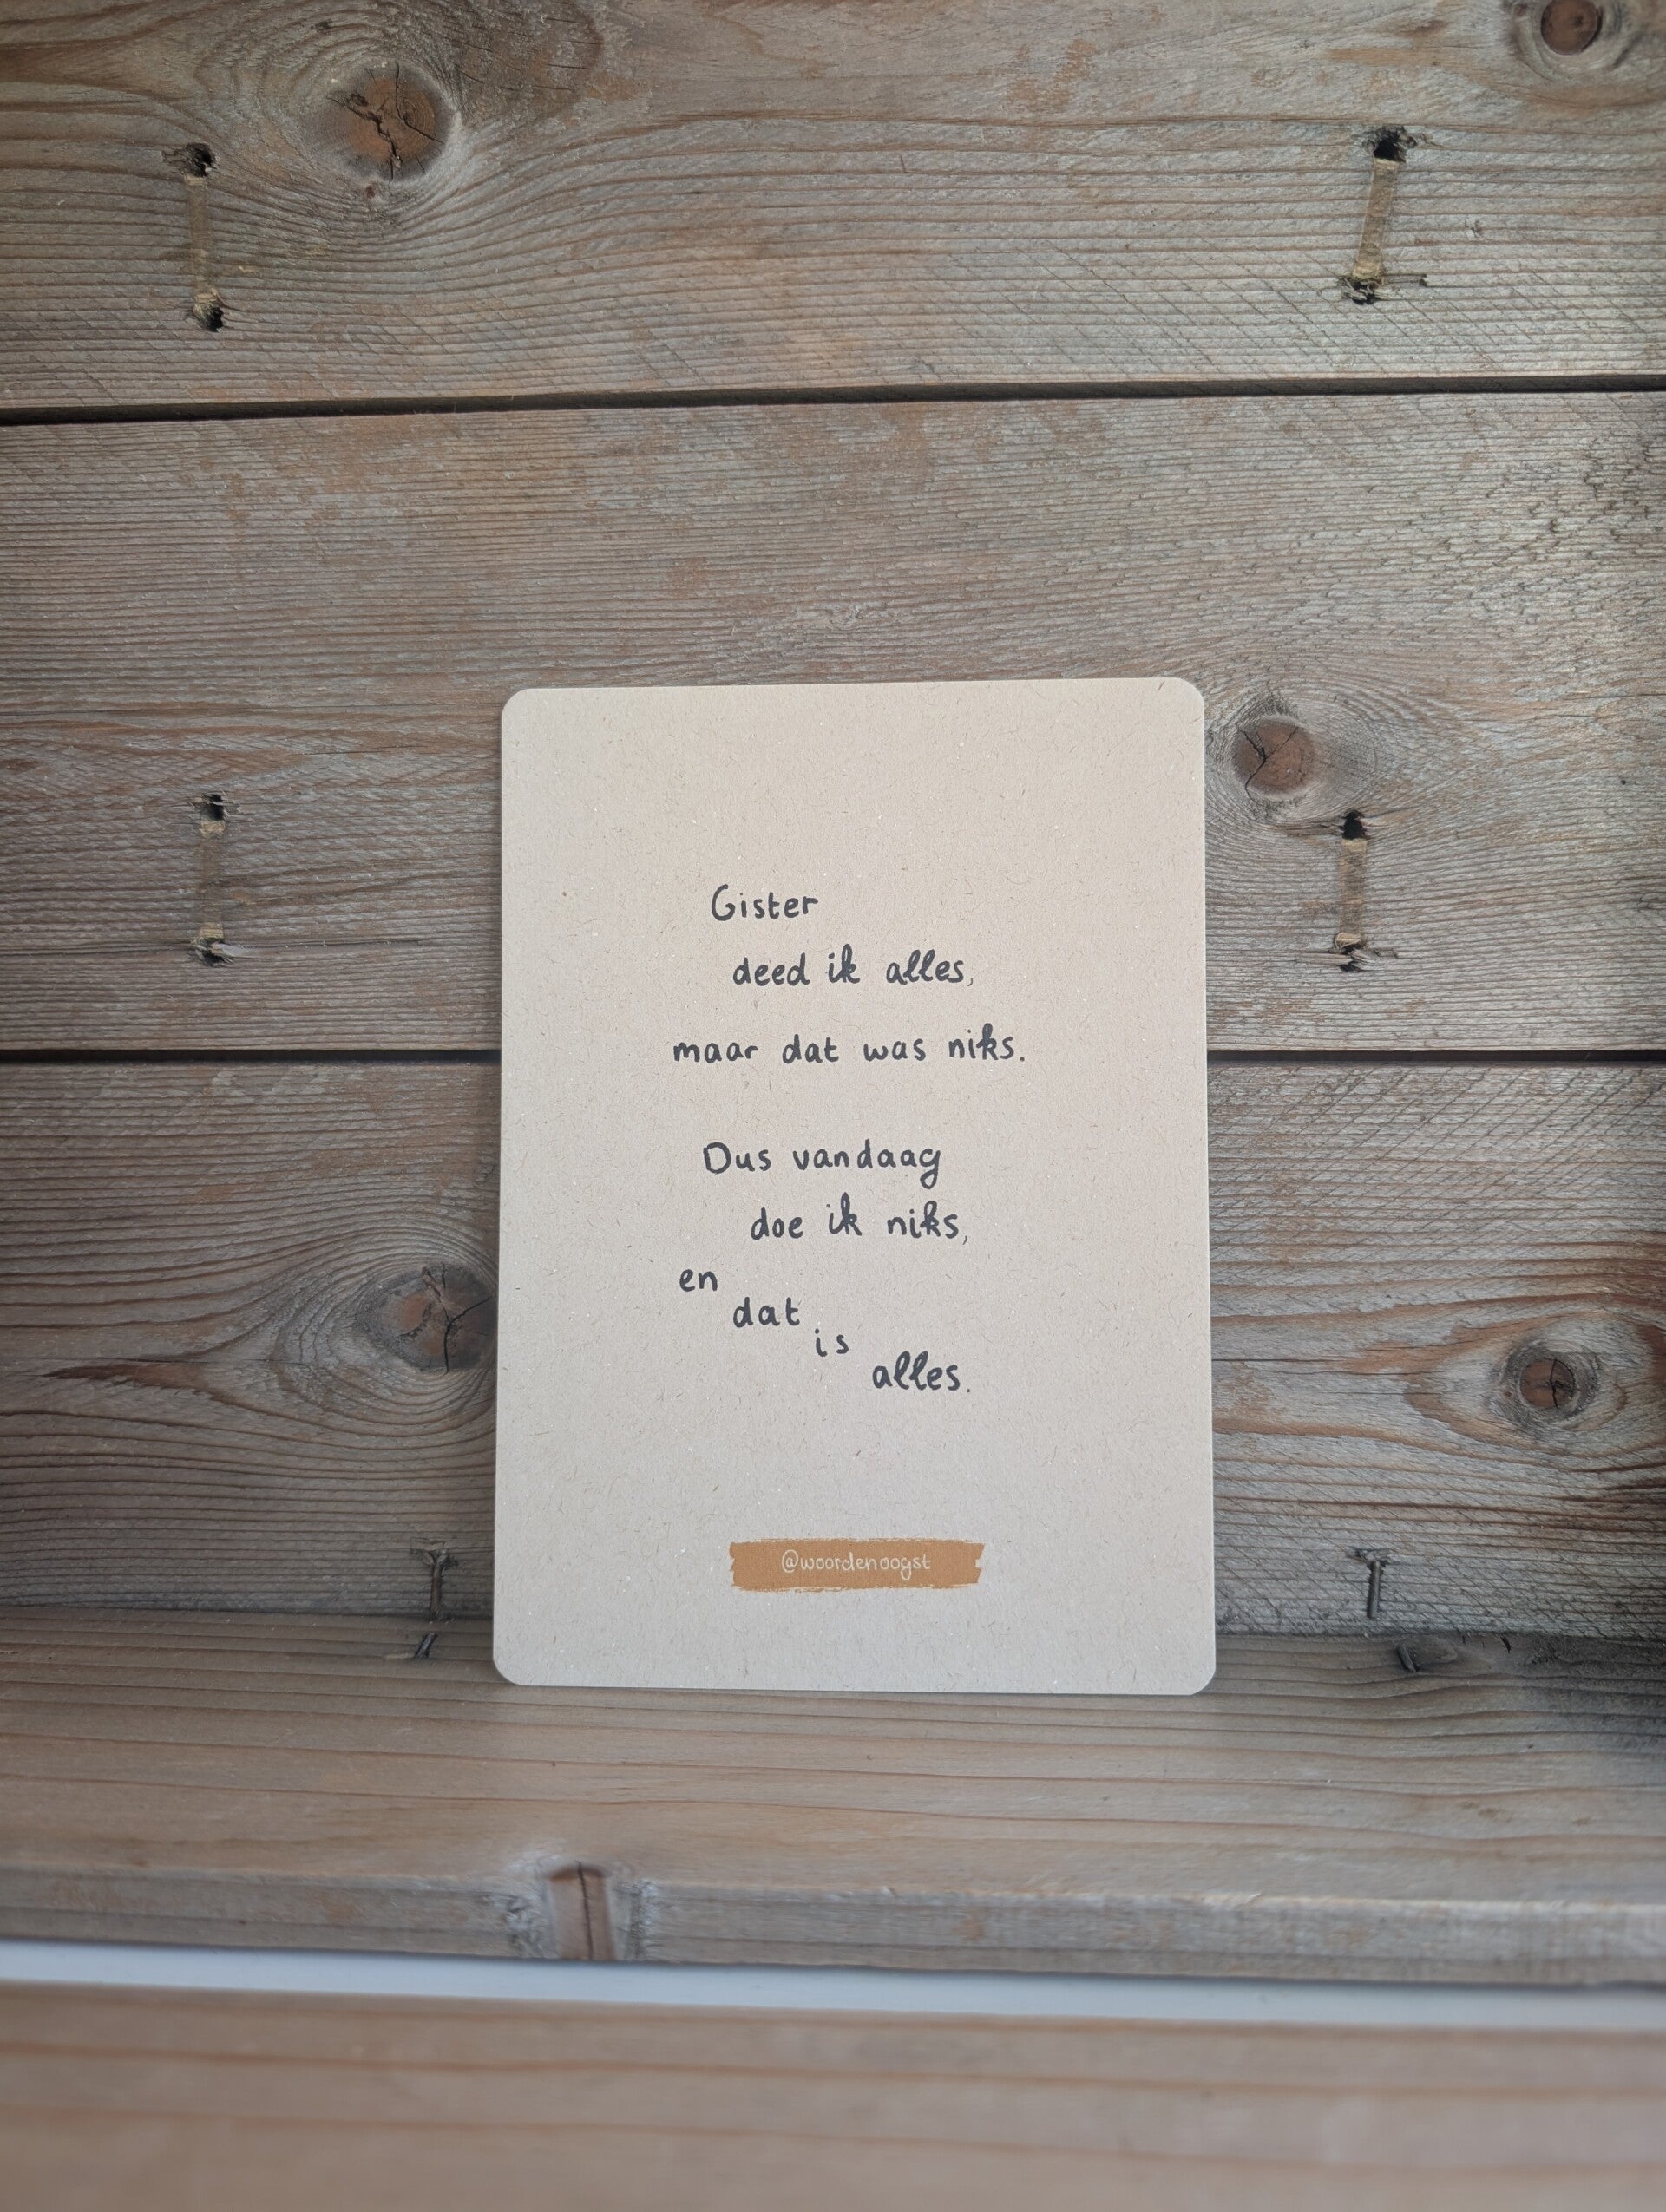 Gister
deed ik alles,
maar dat was niks.
Dus vandaag
doe ik niks,
en
dat
is
alles.
@woordenoogst